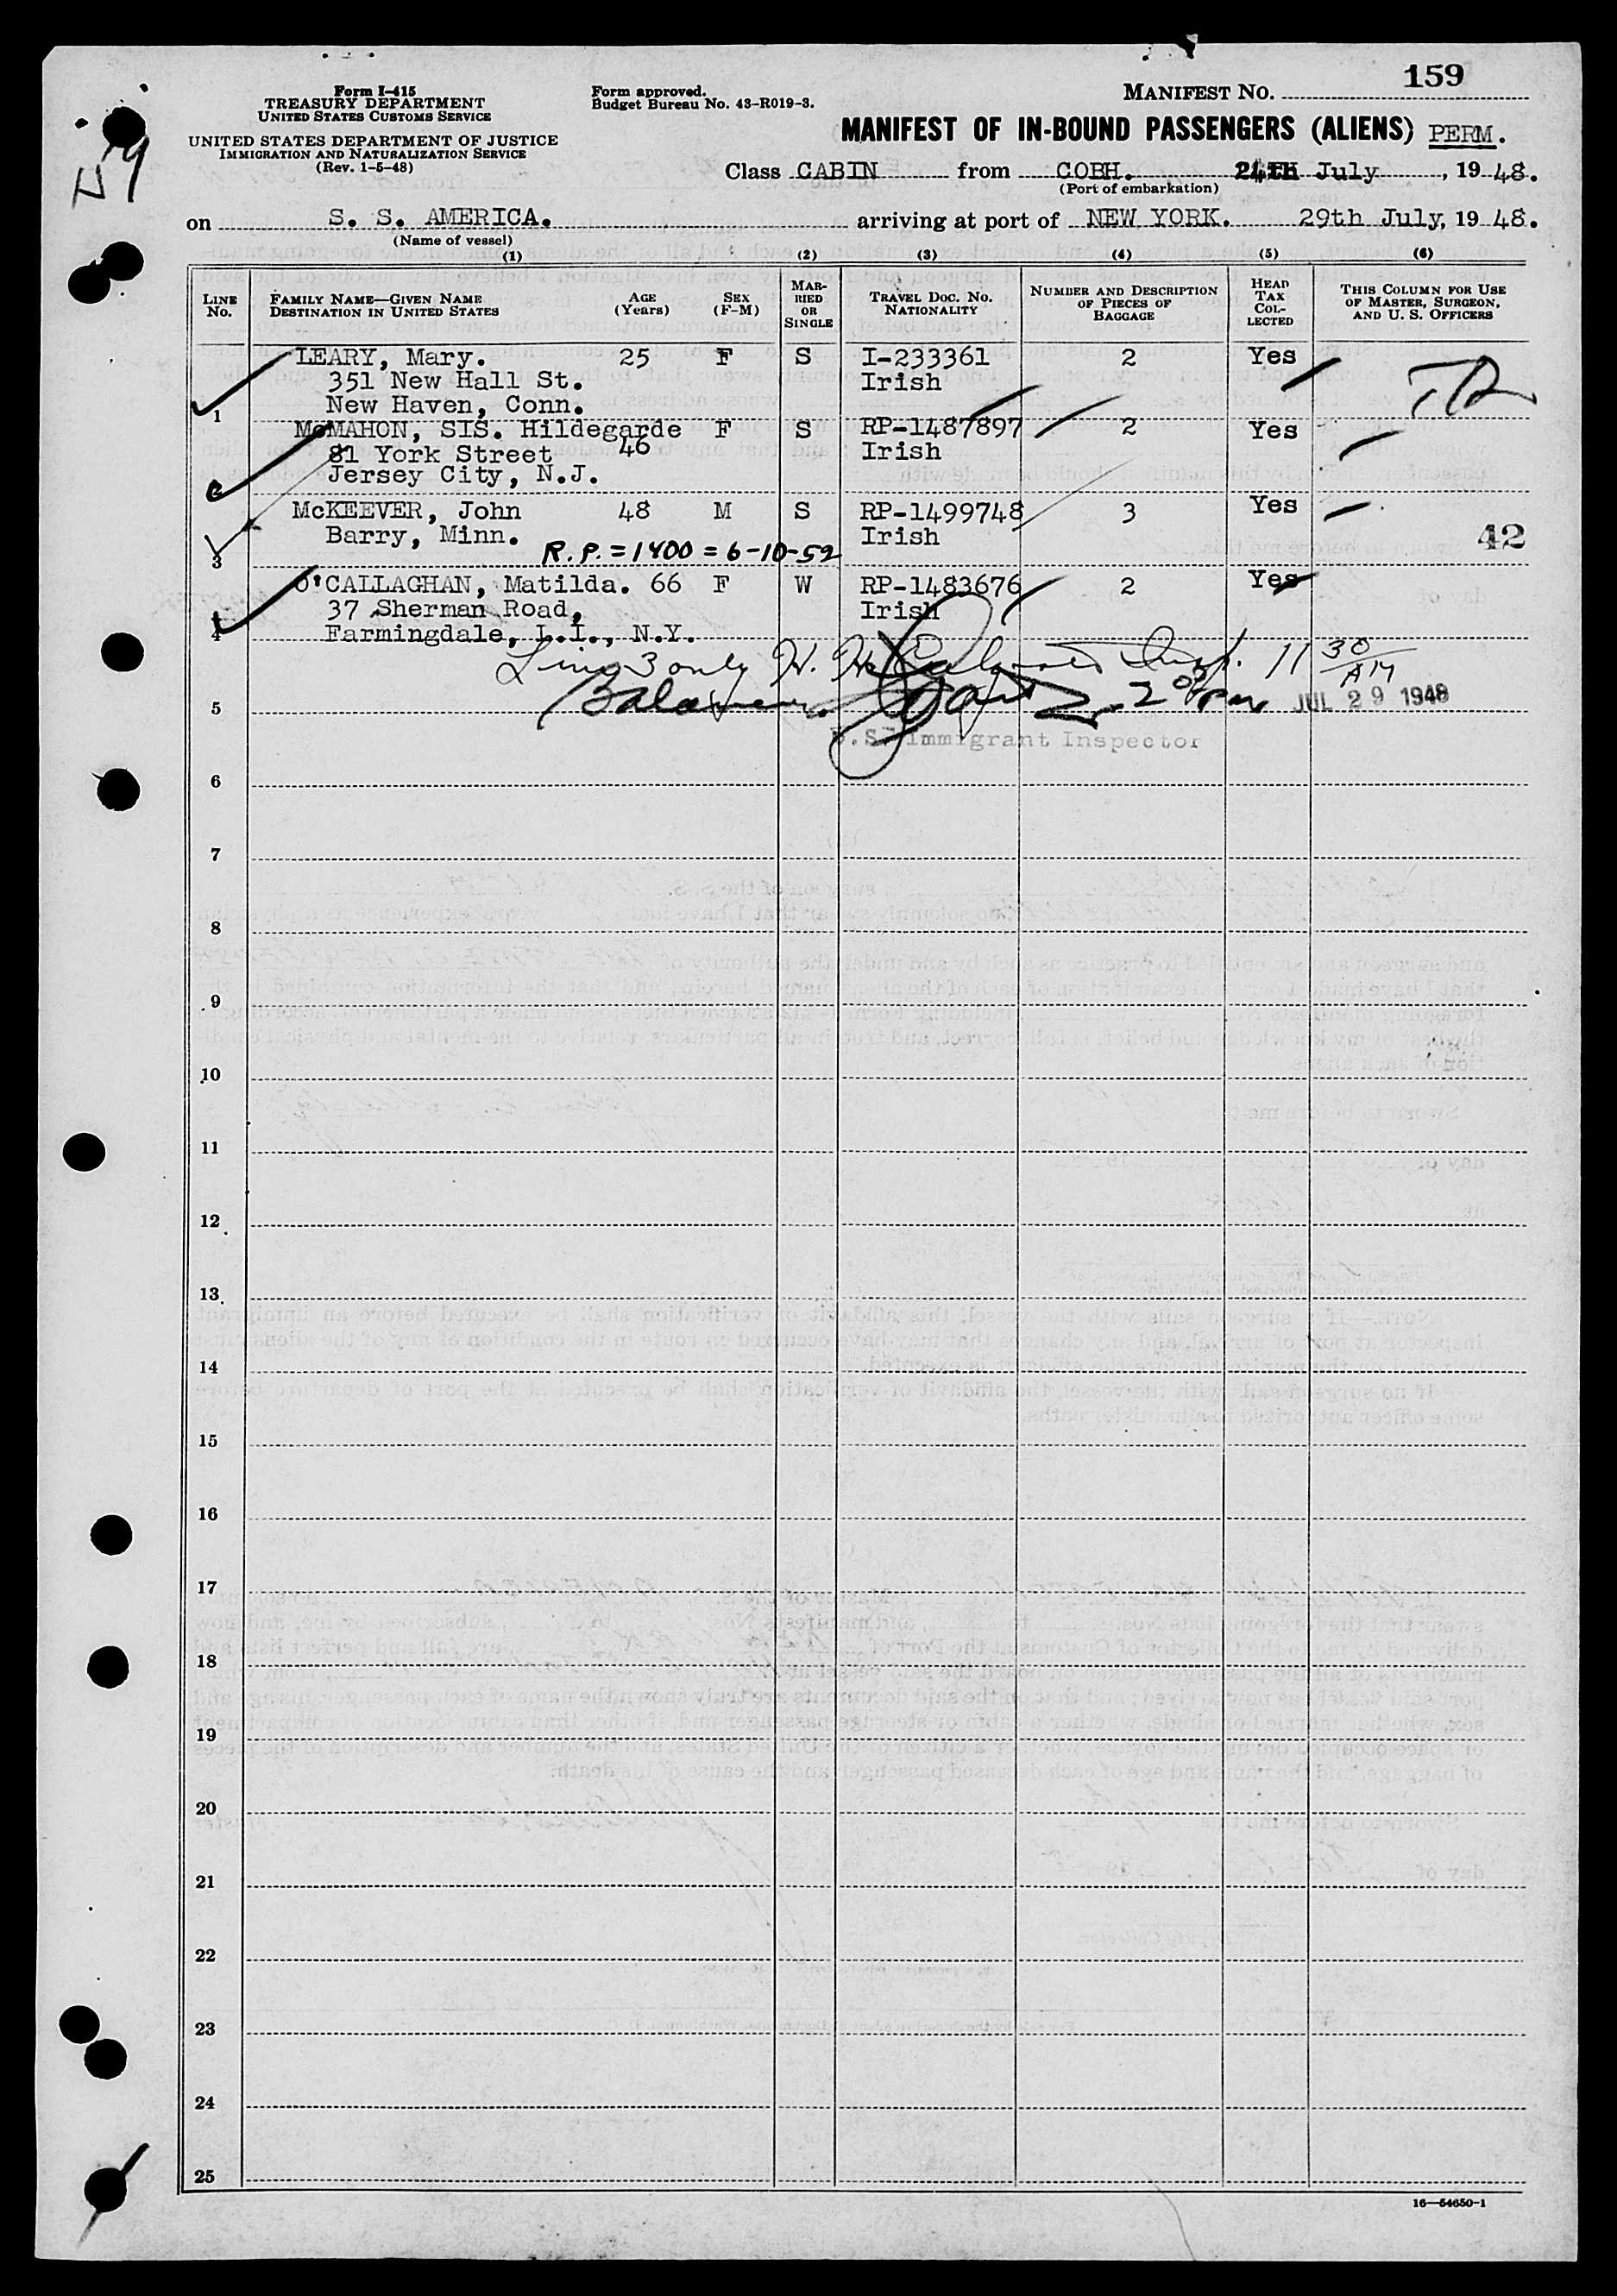 159
Form I-415
TREASURY DEPARTMENT
UNITED STATES CUSTOMS SERVICE
UNITED STATES DEPARTMENT OF JUSTICE
IMMIGRATION AND NATURALIZATION SERVICE
(Rev. 1-5-48)
Form approved.
Budget Bureau No. 43-R019-3.
MANIFEST NO.
MANIFEST OF IN-BOUND PASSENGERS (ALIENS) PERM.
Class CABIN from COBH. 24th July, 19 48.
(Port of embarkation)
on S. S. AMERICA. arriving at port of NEW YORK. 29th July, 19 48.
(Name of vessel)
(1) (2) (3) (4) (5) (6)
LINE No. FAMILY NAME—GIVEN NAME DESTINATION IN UNITED STATES AGE (Years) SEX (F-M) MARRIED OR SINGLE TRAVEL DOC. NO. NATIONALITY NUMBER AND DESCRIPTION OF PIECES OF BAGGAGE HEAD TAX COLLECTED THIS COLUMN FOR USE OF MASTER, SURGEON, AND U. S. OFFICERS
LEARY, Mary. 25 F S I-233361 2 Yes
351 New Hall St. Irish
1 New Haven, Conn.
McMAHON, SIS. Hildegarde F S RP-1487897 2 Yes
81 York Street 46 Irish
2 Jersey City, N.J.
McKEEVER, John 48 M S RP-1499748 3 Yes
Barry, Minn. Irish 42
3 R.P. = 1400 = 6-10-52
O'CALLAGHAN, Matilda. 66 F W RP-1483676 2 Yes
37 Sherman Road, Irish
4 Farmingdale, L.I., N.Y.
Line 3 only Insp. 11 30 AM
5 JUL 29 1948
U.S. Immigrant Inspector
6
7
8
9
10
11
12
13
14
15
16
17
18
19
20
21
22
23
24
25
16—54650-1